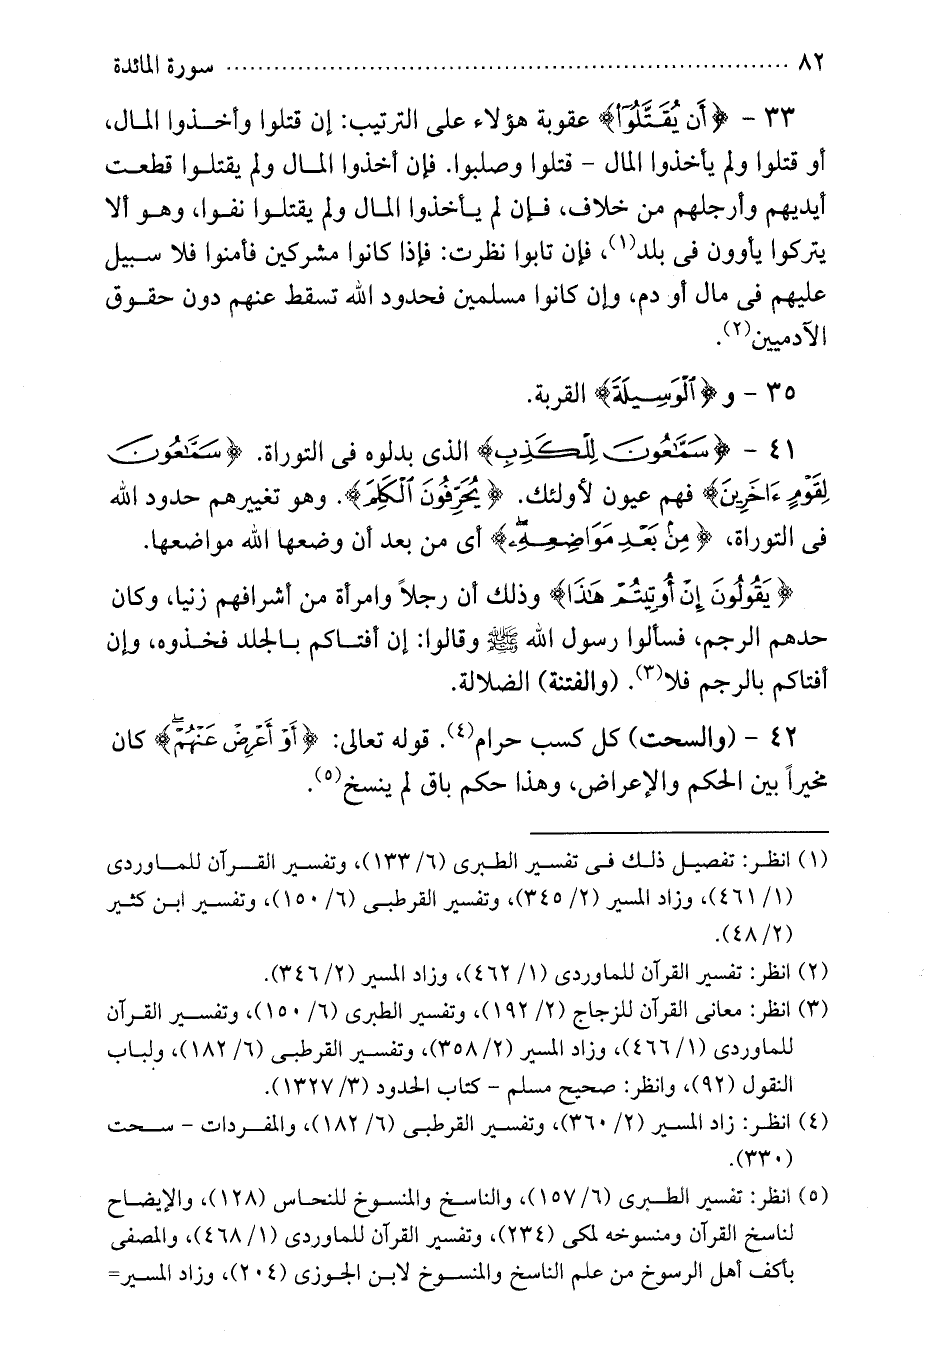 ٨٢ ........................................................ سورة المائدة
٣٣ - ﴿أَن يُقَتَّلُوٓا۟﴾ عقوبة هؤلاء على الترتيب: إن قتلوا وأخذوا المال،
أو قتلوا ولم يأخذوا المال - قتلوا وصلبوا. فإن أخذوا المال ولم يقتلوا قطعت
أيديهم وأرجلهم من خلاف، فإن لم يأخذوا المال ولم يقتلوا نفوا، وهو ألا
يتركوا يأوون فى بلد(١)، فإن تابوا نظرت: فإذا كانوا مشركين فأمنوا فلا سبيل
عليهم فى مال أو دم، وإن كانوا مسلمين فحدود الله تسقط عنهم دون حقوق
الآدميين(٢).
٣٥ - و ﴿ٱلْوَسِيلَةَ﴾ القربة.
٤١ - ﴿سَمَّٰعُونَ لِلْكَذِبِ﴾ الذى بدلوه فى التوراة. ﴿سَمَّٰعُونَ
لِقَوْمٍ ءَاخَرِينَ﴾ فهم عيون لأولئك. ﴿يُحَرِّفُونَ ٱلْكَلِمَ﴾. وهو تغييرهم حدود الله
فى التوراة، ﴿مِنۢ بَعْدِ مَوَاضِعِهِۦ﴾ أى من بعد أن وضعها الله مواضعها.
﴿يَقُولُونَ إِنْ أُوتِيتُمْ هَٰذَا﴾ وذلك أن رجلاً وامرأة من أشرافهم زنيا، وكان
حدهم الرجم، فسألوا رسول الله ﷺ وقالوا: إن أفتاكم بالجلد فخذوه، وإن
أفتاكم بالرجم فلا(٣). (والفتنة) الضلالة.
٤٢ - (والسحت) كل كسب حرام(٤). قوله تعالى: ﴿أَوْ أَعْرِضْ عَنْهُمْ ۖ﴾ كان
مخيراً بين الحكم والإعراض، وهذا حكم باق لم ينسخ(٥).
(١) انظر: تفصيل ذلك فى تفسير الطبرى (٦/ ١٣٣)، وتفسير القرآن للماوردى
(١/ ٤٦١)، وزاد المسير (٢/ ٣٤٥)، وتفسير القرطبى (٦/ ١٥٠)، وتفسير ابن كثير
(٢/ ٤٨).
(٢) انظر: تفسير القرآن للماوردى (١/ ٤٦٢)، وزاد المسير (٢/ ٣٤٦).
(٣) انظر: معانى القرآن للزجاج (٢/ ١٩٢)، وتفسير الطبرى (٦/ ١٥٠)، وتفسير القرآن
للماوردى (١/ ٤٦٦)، وزاد المسير (٢/ ٣٥٨)، وتفسير القرطبى (٦/ ١٨٢)، ولباب
النقول (٩٢)، وانظر: صحيح مسلم - كتاب الحدود (٣/ ١٣٢٧).
(٤) انظر: زاد المسير (٢/ ٣٦٠)، وتفسير القرطبى (٦/ ١٨٢)، والمفردات - سحت
(٣٣٠).
(٥) انظر: تفسير الطبرى (٦/ ١٥٧)، والناسخ والمنسوخ للنحاس (١٢٨)، والإيضاح
لناسخ القرآن ومنسوخه لمكى (٢٣٤)، وتفسير القرآن للماوردى (١/ ٤٦٨)، والمصفى
بأكف أهل الرسوخ من علم الناسخ والمنسوخ لابن الجوزى (٢٠٤)، وزاد المسير=